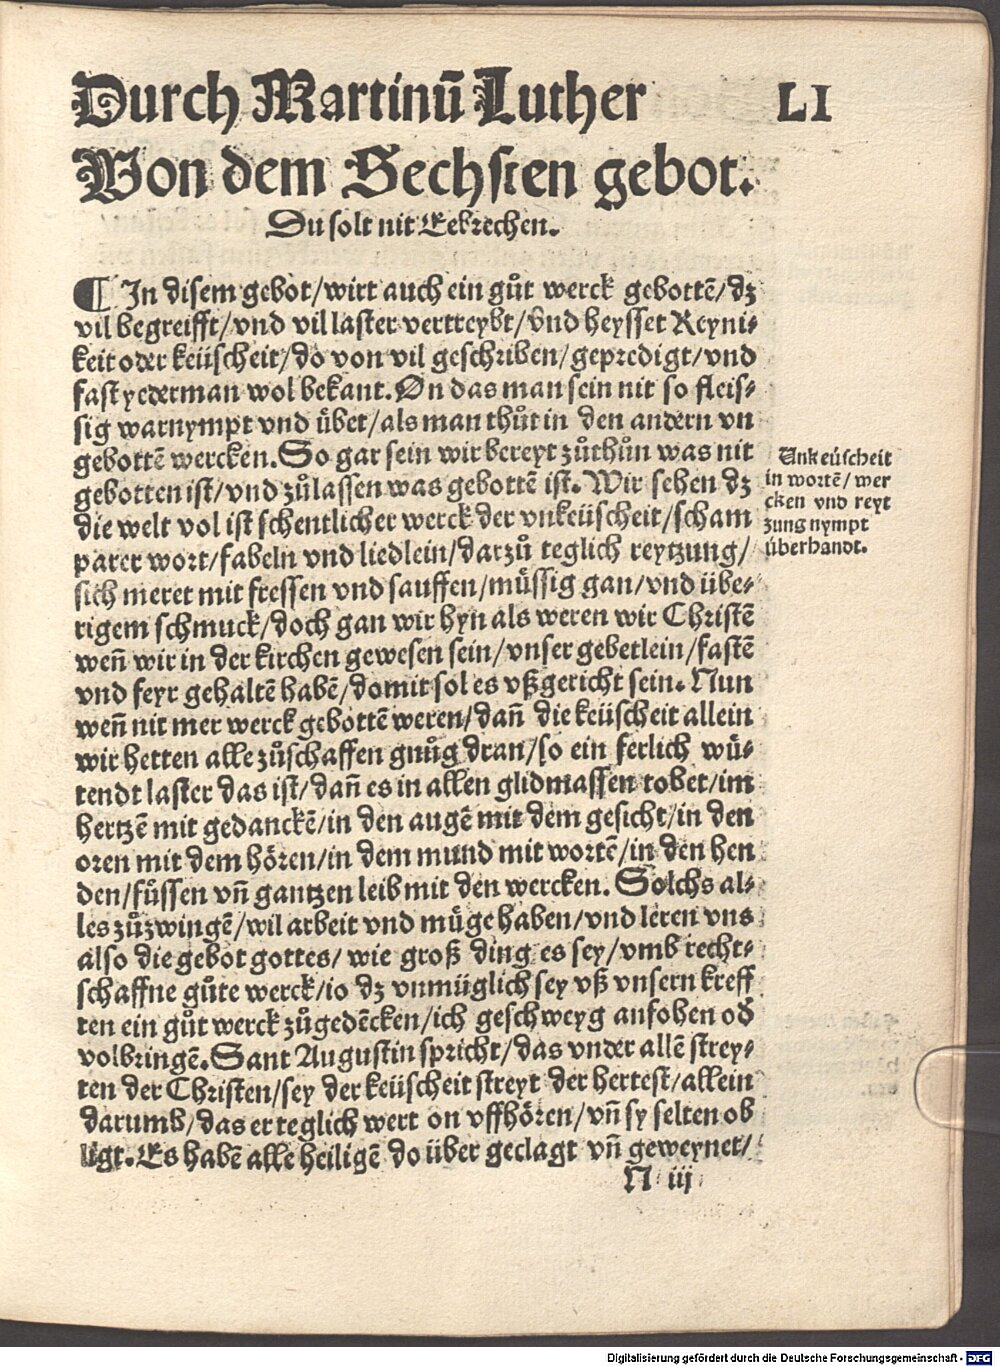 Durch Martinū Luther LI
Von dem Sechsten gebot.
Du solt nit Eebrechen.
¶ In disem gebot/wirt auch ein gůt werck gebottē/dz
vil begreifft/vnd vil laster vertreybt/vnd heysset Reyni-
keit oder keüscheit/do von vil geschriben/gepredigt/vnd
fast yederman wol bekant. On das man sein nit so fleis-
sig warnympt vnd übet/als man thůt in den andern vn
gebottē wercken. So gar sein wir bereyt zůthůn was nit
gebotten ist/vnd zůlassen was gebottē ist. Wir sehen dz
die welt vol ist schentlicher werck der vnkeüscheit/scham
parer wort/fabeln vnd liedlein/darzů teglich reytzung/
sich meret mit fressen vnd sauffen/müssig gan/vnd übe-
rigem schmuck/doch gan wir hyn als weren wir Christē
weñ wir in der kirchen gewesen sein/vnser gebetlein/fastē
vnd feyr gehaltē habē/domit sol es vßgericht sein. Nun
weñ nit mer werck gebottē weren/dañ die keüscheit allein
wir hetten alle zůschaffen gnůg dran/so ein ferlich wü-
tendt laster das ist/dañ es in allen glidmassen tobet/im
hertzē mit gedanckē/in den augē mit dem gesicht/in den
oren mit dem hören/in dem mund mit wortē/in den hen
den/füssen vñ gantzen leib mit den wercken. Solchs al-
les zůzwingē/wil arbeit vnd müge haben/vnd leren vns
also die gebot gottes/wie groß ding es sey/vmb recht-
schaffne gůte werck/io dz vnmüglich sey vß vnsern kreff
ten ein gůt werck zůgedēcken/ich geschweyg anfohen od
volbringē. Sant Augustin spricht/das vnder allē strey-
ten der Christen/sey der keüscheit streyt der hertest/allein
darumb/das er teglich wert on vffhören/vñ sy selten ob
ligt. Es habē alle heiligē do über geclagt vñ geweynet/
N iij
Unkeüscheit
in wortē/wer
cken vnd reyt
zung nympt
überhandt.
Digitalisierung gefördert durch die Deutsche Forschungsgemeinschaft - DFG